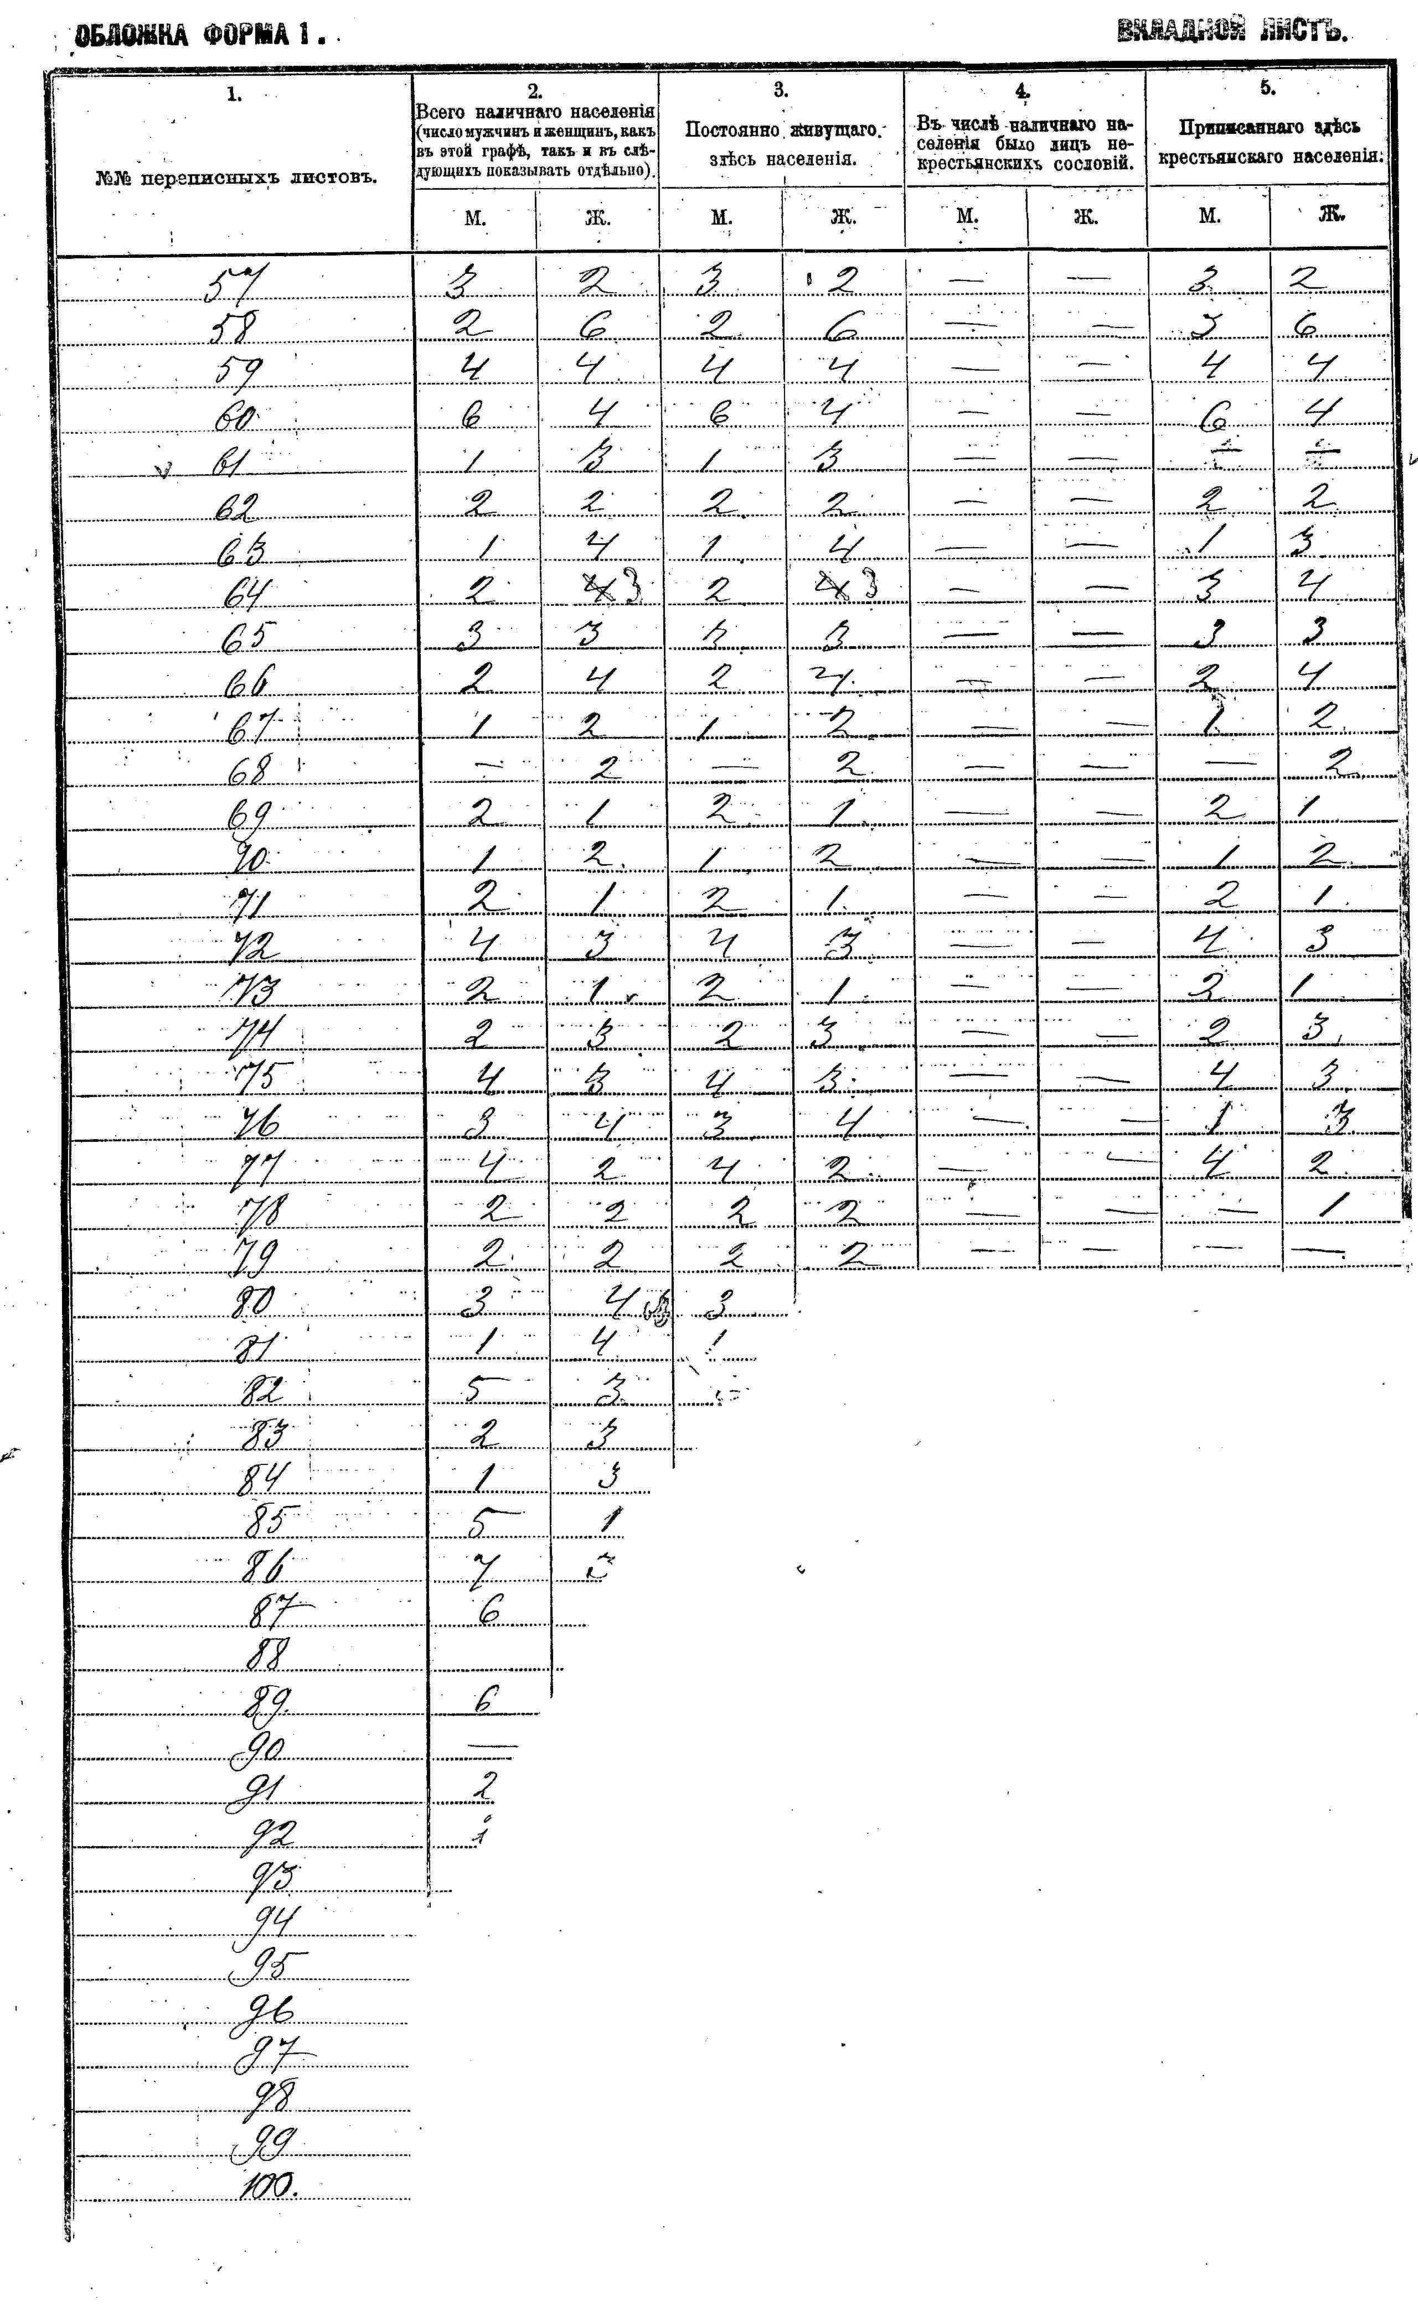 ОБЛОЖКА ФОРМА 1.
ВКЛАДНОЙ ЛИСТЪ.
1. 2. 3. 4. 5.
№№ переписныхъ листовъ.
Всего наличнаго населенія
(число мужчинъ и женщинъ, какъ
въ этой графѣ, такъ и въ слѣ-
дующихъ показывать отдѣльно).
Постоянно живущаго
здѣсь населенія.
Въ числѣ наличнаго на-
селенія было лицъ не-
крестьянскихъ сословій.
Приписаннаго здѣсь
крестьянскаго населенія:
М. Ж. М. Ж. М. Ж. М. Ж.
57 3 2 3 2 — — 3 2
58 2 6 2 6 — — 3 6
59 4 4 4 4 — — 4 4
60 6 4 6 4 — — 6 4
v 61 1 3 1 3 — — — —
62 2 2 2 2 — — 2 2
63 1 4 1 4 — — 1 3
64 2 4 3 2 4 3 — — 3 4
65 3 3 3 3 — — 3 3
66 2 4 2 4 — — 2 4
67 1 2 1 2 — — 1 2
68 — 2 — 2 — — — 2
69 2 1 2 1 — — 2 1
70 1 2 1 2 — — 1 2
71 2 1 2 1 — — 2 1
72 4 3 4 3 — — 4 3
73 2 1 2 1 — — 2 1
74 2 3 2 3 — — 2 3
75 4 3 4 3 — — 4 3
76 3 4 3 4 — — 1 3
77 4 2 4 2 — — 4 2
78 2 2 2 2 — — — 1
79 2 2 2 2 — — — —
80 3 4 3
81 1 4 1
82 5 3
83 2 3
84 1 3
85 5 1
86 7
87 6
88
89. 6
90 —
91 2
92 1
93
94
95
96
97
98
99
100.